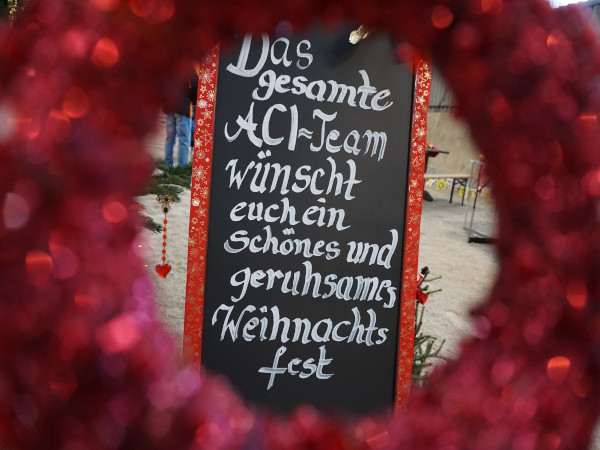 Das
gesamte
ACI-Team
wünscht
euch ein
schönes und
geruhsames
Weihnachts
fest